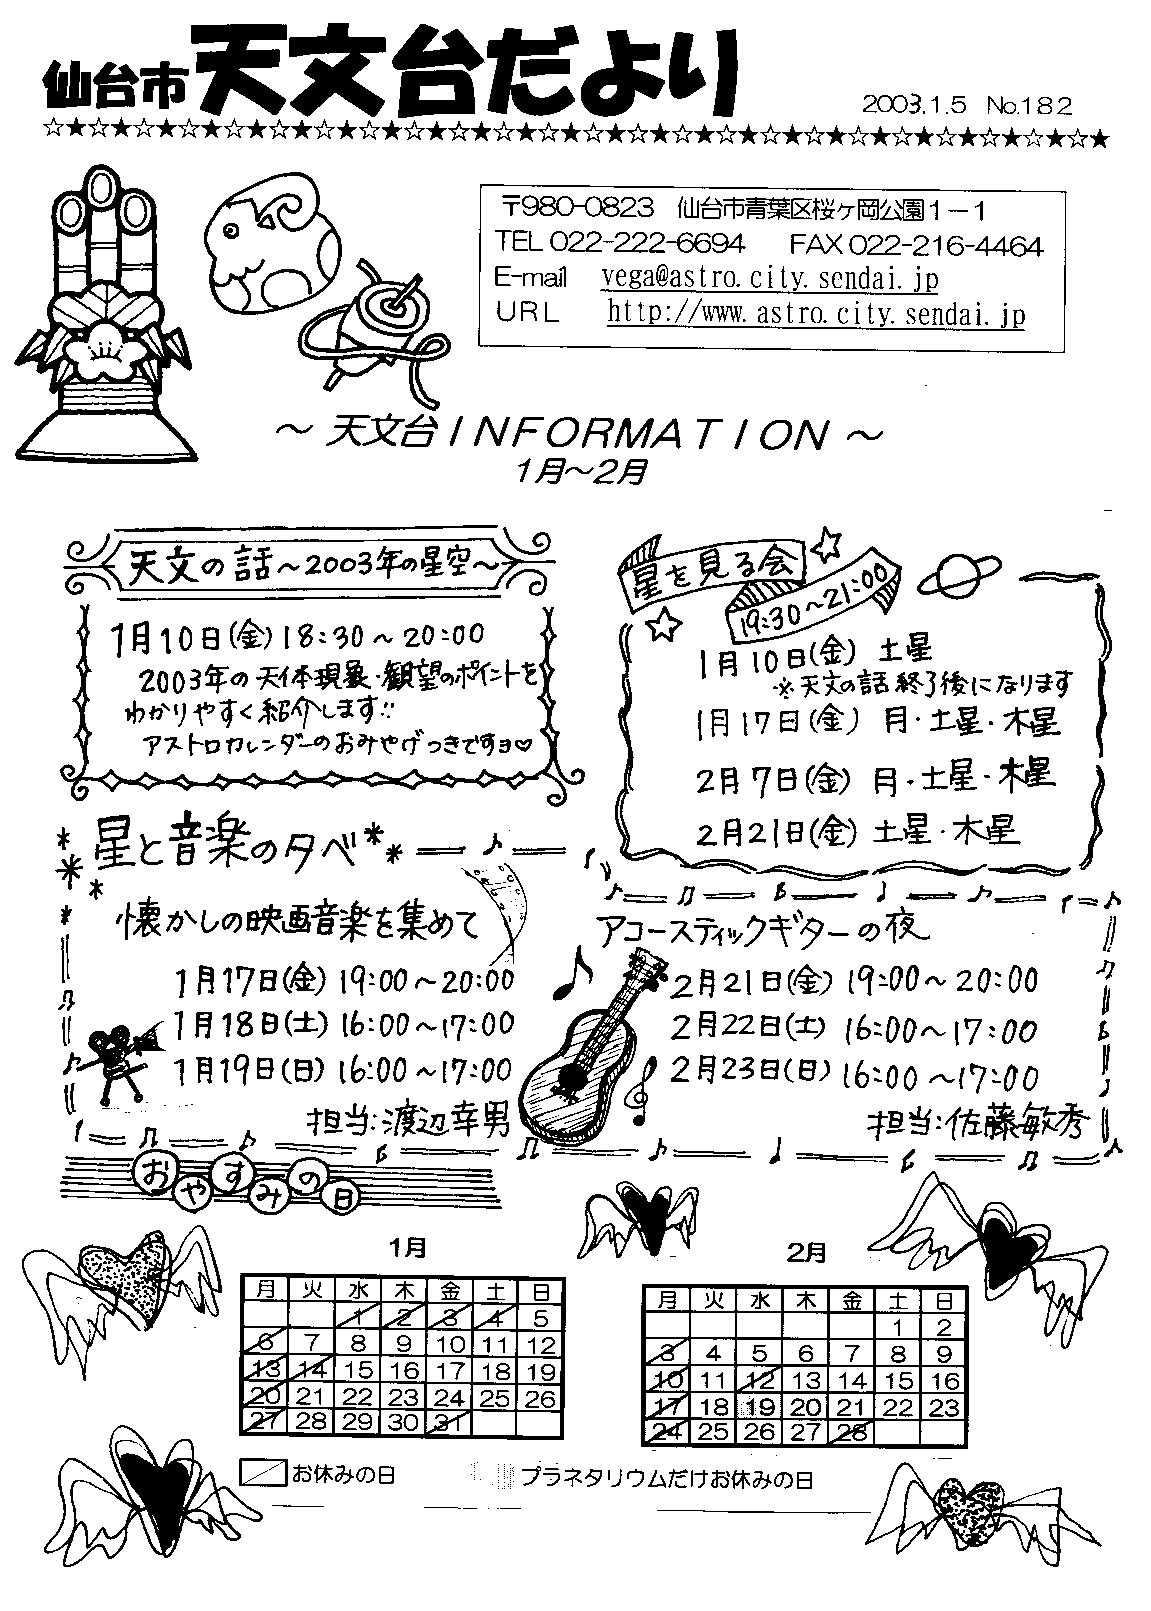 仙台市天文台だより
2003.1.5 No.182
☆★☆★☆★☆★☆★☆★☆★☆★☆★☆★☆★☆★☆★☆★☆★☆★☆★☆★☆★☆★☆★☆★☆★
〒980-0823 仙台市青葉区桜ヶ岡公園1-1
TEL 022-222-6694 FAX 022-216-4464
E-mail vega@astro.city.sendai.jp
URL http://www.astro.city.sendai.jp
～天文台INFORMATION～
1月～2月
天文の話～2003年の星空～
1月10日(金)18:30～20:00
2003年の天体現象・観望のポイントを
わかりやすく紹介します!!
アストロカレンダーのおみやげつきですヨ♡
星を見る会
19:30～21:00
1月10日(金) 土星
※天文の話終了後になります
1月17日(金) 月・土星・木星
2月7日(金) 月・土星・木星
2月21日(金) 土星・木星
星と音楽の夕べ
懐かしの映画音楽を集めて
1月17日(金) 19:00～20:00
1月18日(土) 16:00～17:00
1月19日(日) 16:00～17:00
担当:渡辺幸男
アコースティックギターの夜
2月21日(金) 19:00～20:00
2月22日(土) 16:00～17:00
2月23日(日) 16:00～17:00
担当:佐藤敏秀
おやすみの日
1月
月 火 水 木 金 土 日
1 2 3 4 5
6 7 8 9 10 11 12
13 14 15 16 17 18 19
20 21 22 23 24 25 26
27 28 29 30 31
2月
月 火 水 木 金 土 日
1 2
3 4 5 6 7 8 9
10 11 12 13 14 15 16
17 18 19 20 21 22 23
24 25 26 27 28
お休みの日
プラネタリウムだけお休みの日